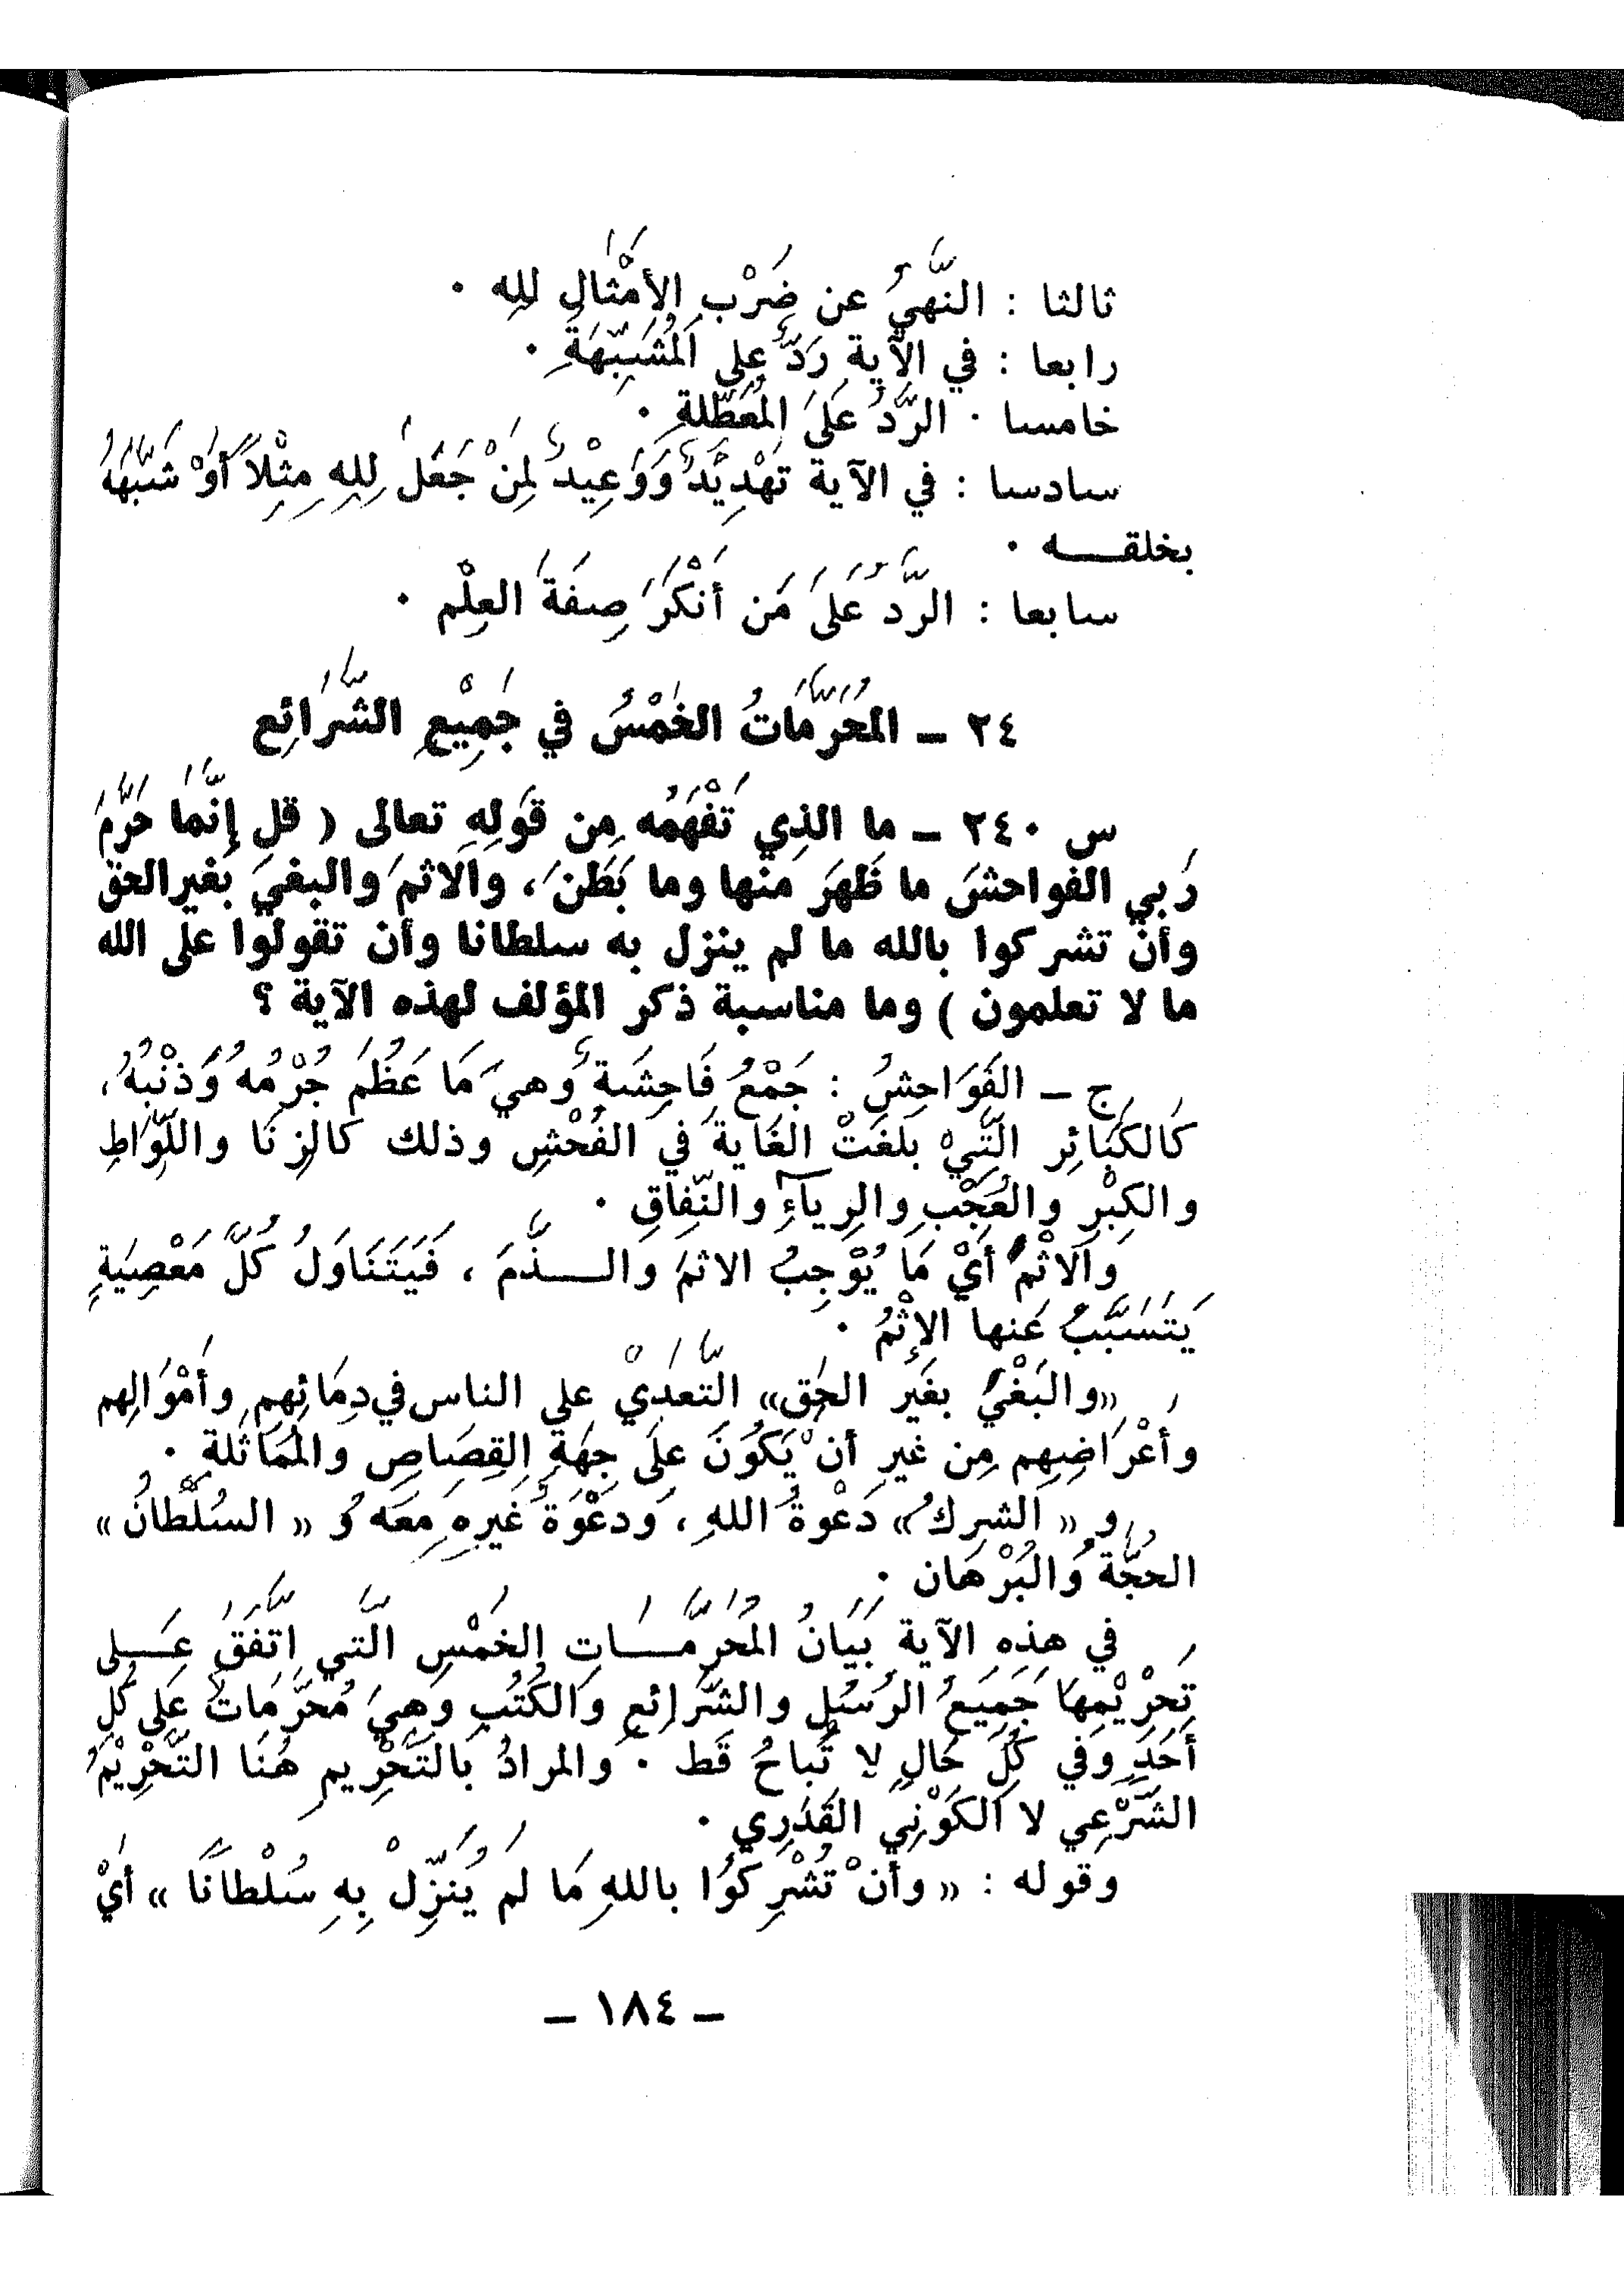 ثالثا : النَّهْيُ عن ضَرْبِ الأَمْثَالِ لله .
رابعا : في الآيةِ رَدٌّ على المُشَبِّهَةِ .
خامسا . الرَّدُّ عَلَى المُعَطِّلةِ .
سادسا : في الآية تَهْدِيْدٌ وَوَعِيْدٌ لِمَنْ جَعَلَ لِلهِ مِثْلاً أوْ شَبَّهَهُ
بخلقـــه .
سابعا : الرَّدُّ عَلَى مَن أَنْكَرَ صِفَةَ العِلْم .
٢٤ – المُحَرَّمَاتُ الخَمْسُ في جَمِيْعِ الشَّرَائِع
س ٢٤٠ – ما الذي تَفْهَمُه مِن قَولِهِ تعالى ( قل إنَّمَا حَرَّمَ
رَبي الفواحشَ ما ظَهَرَ منها وما بَطَنَ ، والاثمَ والبغيَ بغيرالحق
وأنْ تشركوا بالله ما لم ينزل به سلطانا وأن تقولوا على الله
ما لا تعلمون ) وما مناسبة ذكر المؤلف لهذه الآية ؟
ج – الفَوَاحِشُ : جَمْعُ فَاحِشَةٍ وهيَ مَا عَظُمَ جُرْمُهُ وَذَنْبُهُ ،
كَالكَبَائِر الَّتِيْ بلَغَتْ الغَايةَ في الفُحْشِ وذلك كالزِنَا واللِّوَاطِ
والكِبْرِ والعُجْبِ والرِياَءِ والنِّفَاقِ .
والاثْمُ أيْ مَا يُوْجِبُ الاثمَ والـــذَّمَ ، فَيَتَنَاوَلُ كُلَّ مَعْصِيَةٍ
يَتَسَبَّبُ عَنها الإِثْمُ .
«والبَغْيُ بغَيرِ الحَق» التَّعدِيْ على الناس في دِمَائِهِم وأَمْوَالِهم
وأَعْرَاضِهِم مِن غَيرِ أنْ يَكُوْنَ علَى جِهَةِ القِصَاصِ والمُمَاثَلة .
و « الشِركُ » دَعْوةُ اللهِ ، وَدعْوَةُ غَيرِهِ مَعَه وُ « السُلْطَانُ »
الحُجَّةُ وَالبُرْهَان .
في هذِهِ الآيةِ بَيَانُ المُحَرَّمَـــاتِ الخَمْسِ الَّتي اتَّفَقَ عَـــلى
تَحْرِيْمِهَا جَمِيَعُ الرُسُلِ والشَّرَائعِ وَالكُتُبِ وَهيَ مُحَرَّمَاتٌ عَلى كُلِ
أحَدٍ وفي كُلِ حَالٍ لا تُباحُ قَط . والمرادُ بالتَحْرِيم هُنَا التَّحْرِيْمُ
الشَّرْعِي لا الكَوْنِي القَدَرِي .
وقوله : « وأنْ تُشْرِكُوْا باللهِ مَا لَمْ يُنَزِّلْ بِهِ سُلْطَانًا » أيْ
– ١٨٤ –